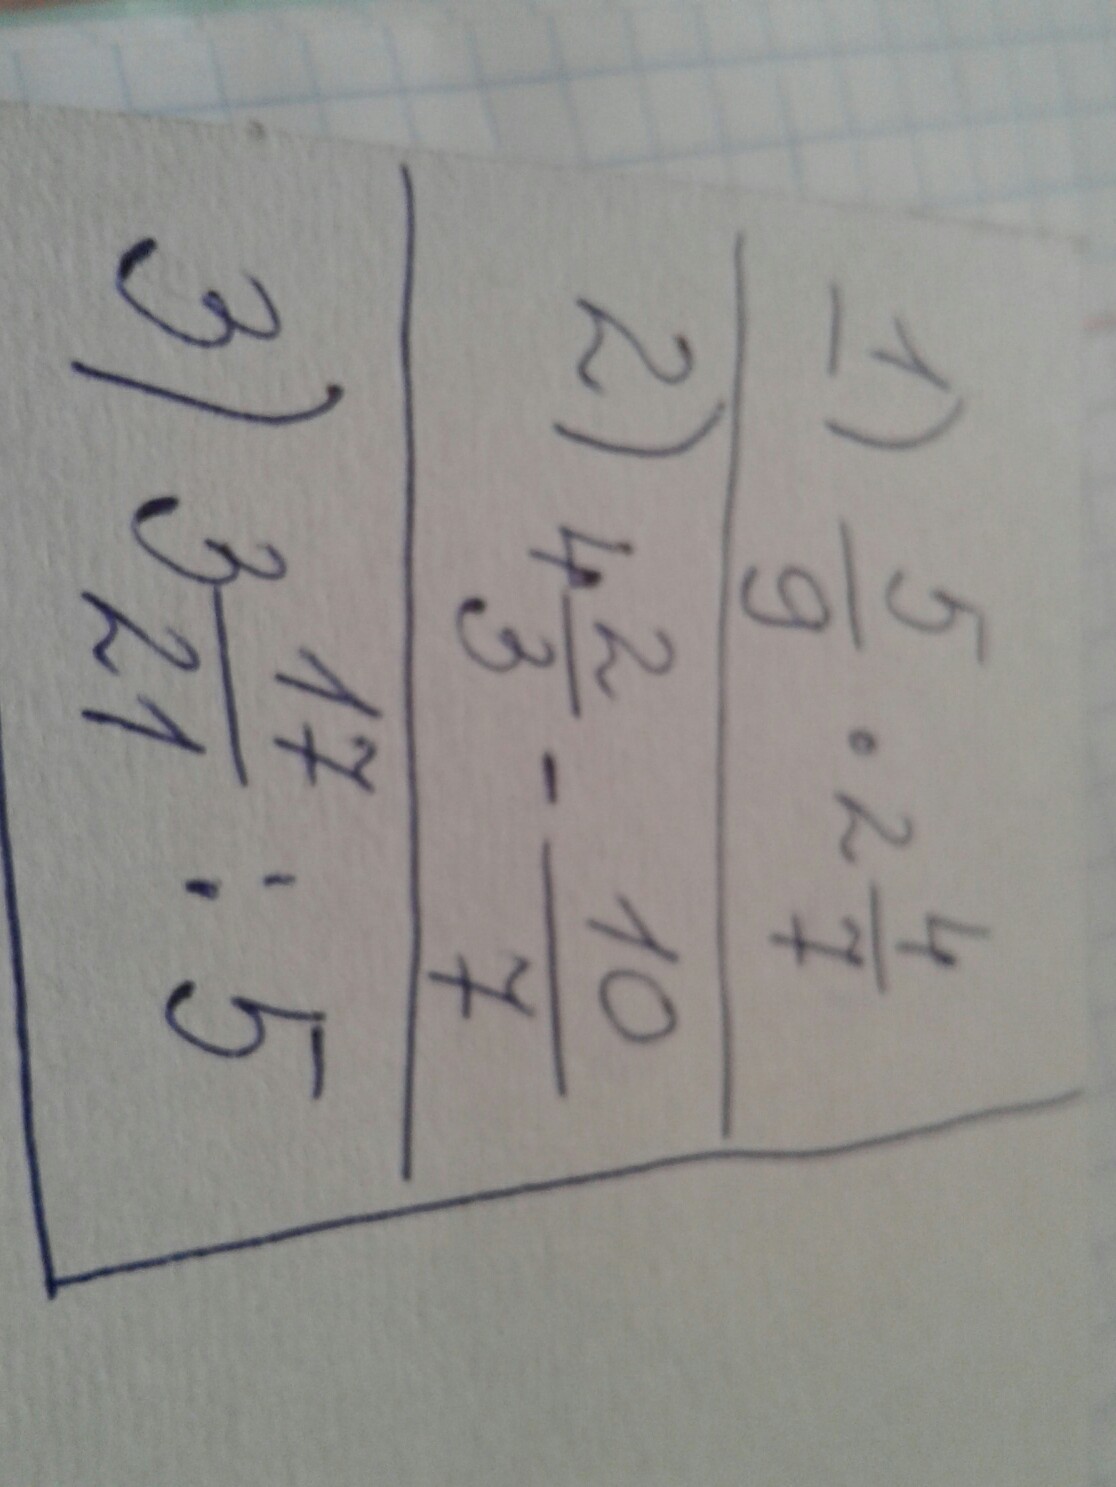 1) 5/9 · 2 4/7
2) 4 2/3 - 10/7
3) 3 17/21 : 5